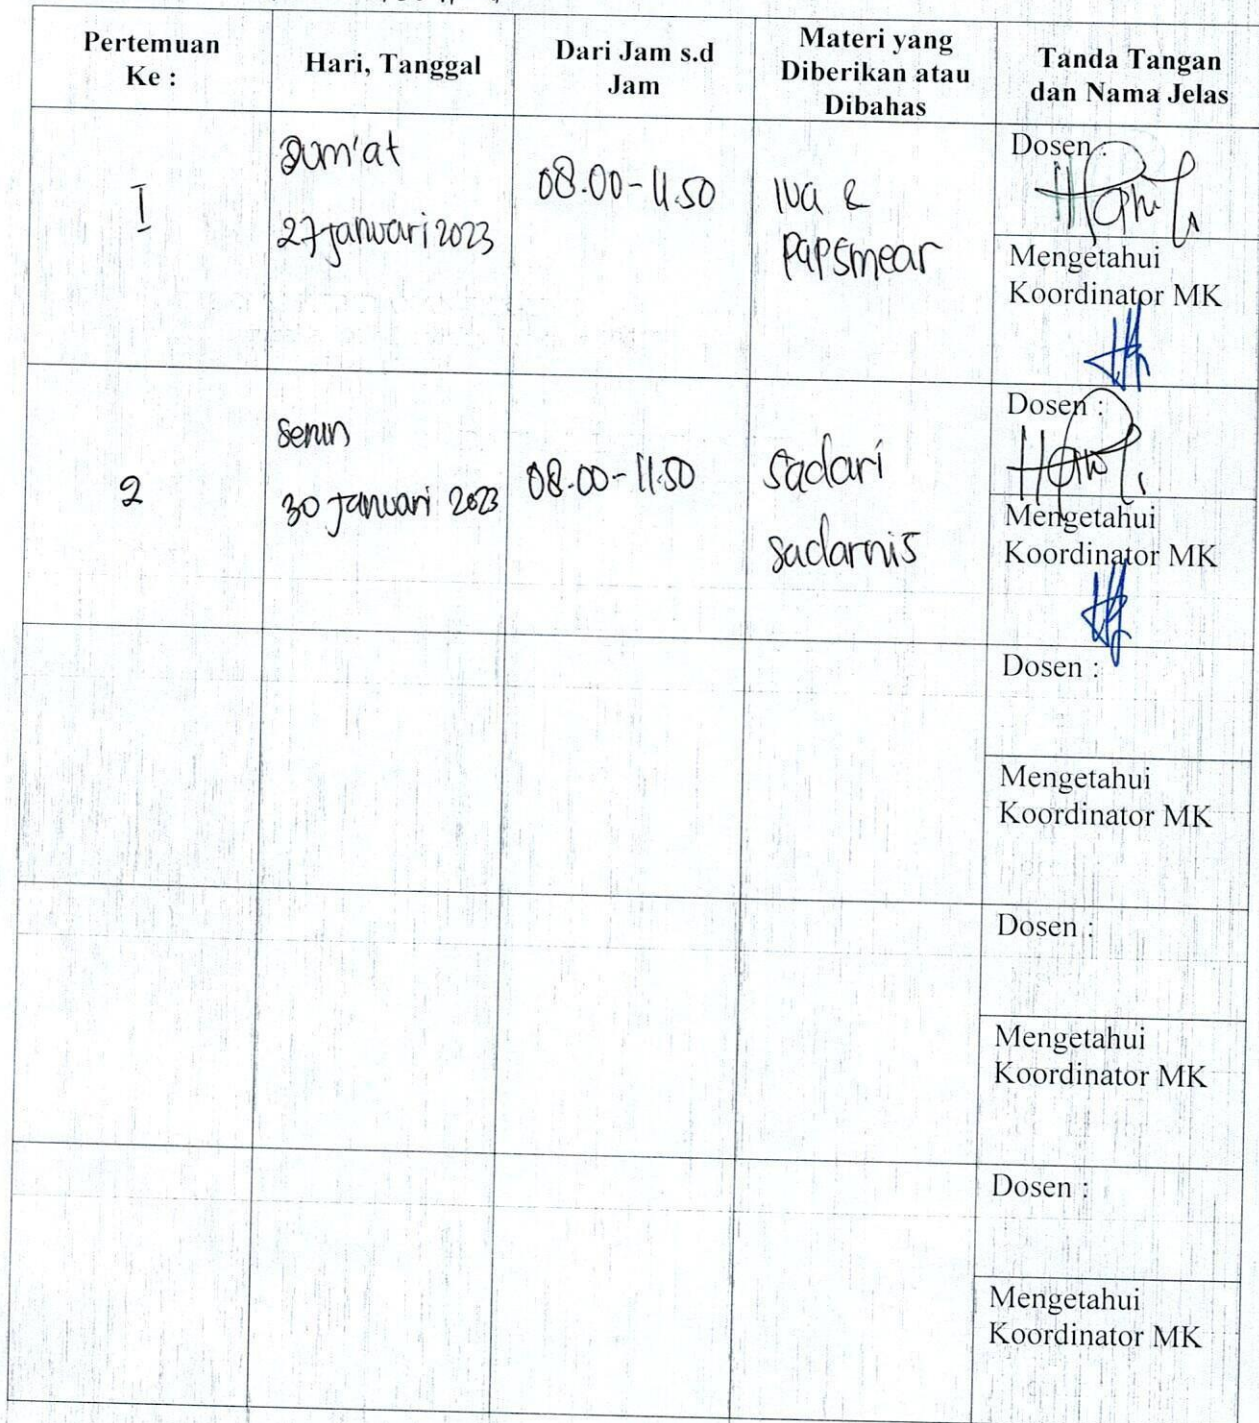 Pertemuan
Ke :
Hari, Tanggal
Dari Jam s.d
Jam
Materi yang
Diberikan atau
Dibahas
Tanda Tangan
dan Nama Jelas
I
Jum'at
27 Januari 2023
08.00 - 11.50
Iva &
Papsmear
Dosen :
Mengetahui
Koordinator MK
2
Senin
30 Januari 2023
08.00 - 11.50
Sadari
Sadarnis
Dosen :
Mengetahui
Koordinator MK
Dosen :
Mengetahui
Koordinator MK
Dosen :
Mengetahui
Koordinator MK
Dosen :
Mengetahui
Koordinator MK